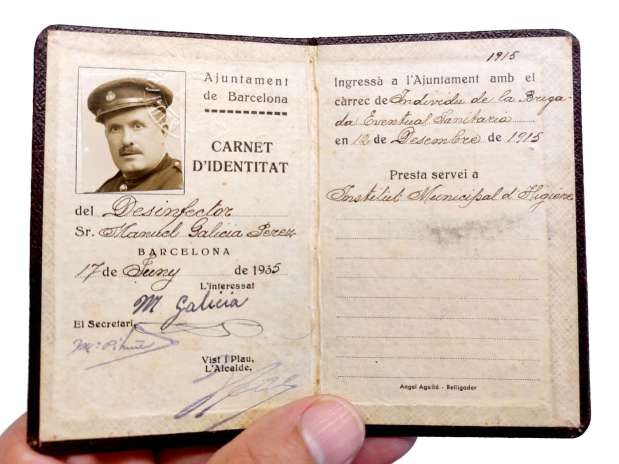 Ajuntament
de Barcelona
CARNET
D'IDENTITAT
del Desinfector
Sr. Manuel Galicia Perez
BARCELONA
17 de Juny de 1935
L'interessat
M Galicia
El Secretari,
Vist i Plau,
L'Alcalde,
1915
Ingressà a l'Ajuntament amb el
càrrec de Individu de la Briga-
da Eventual Sanitaria
en 12 de Desembre de 1915
Presta servei a
Institut Municipal d'Higiene
Angel Aguiló - Relligador